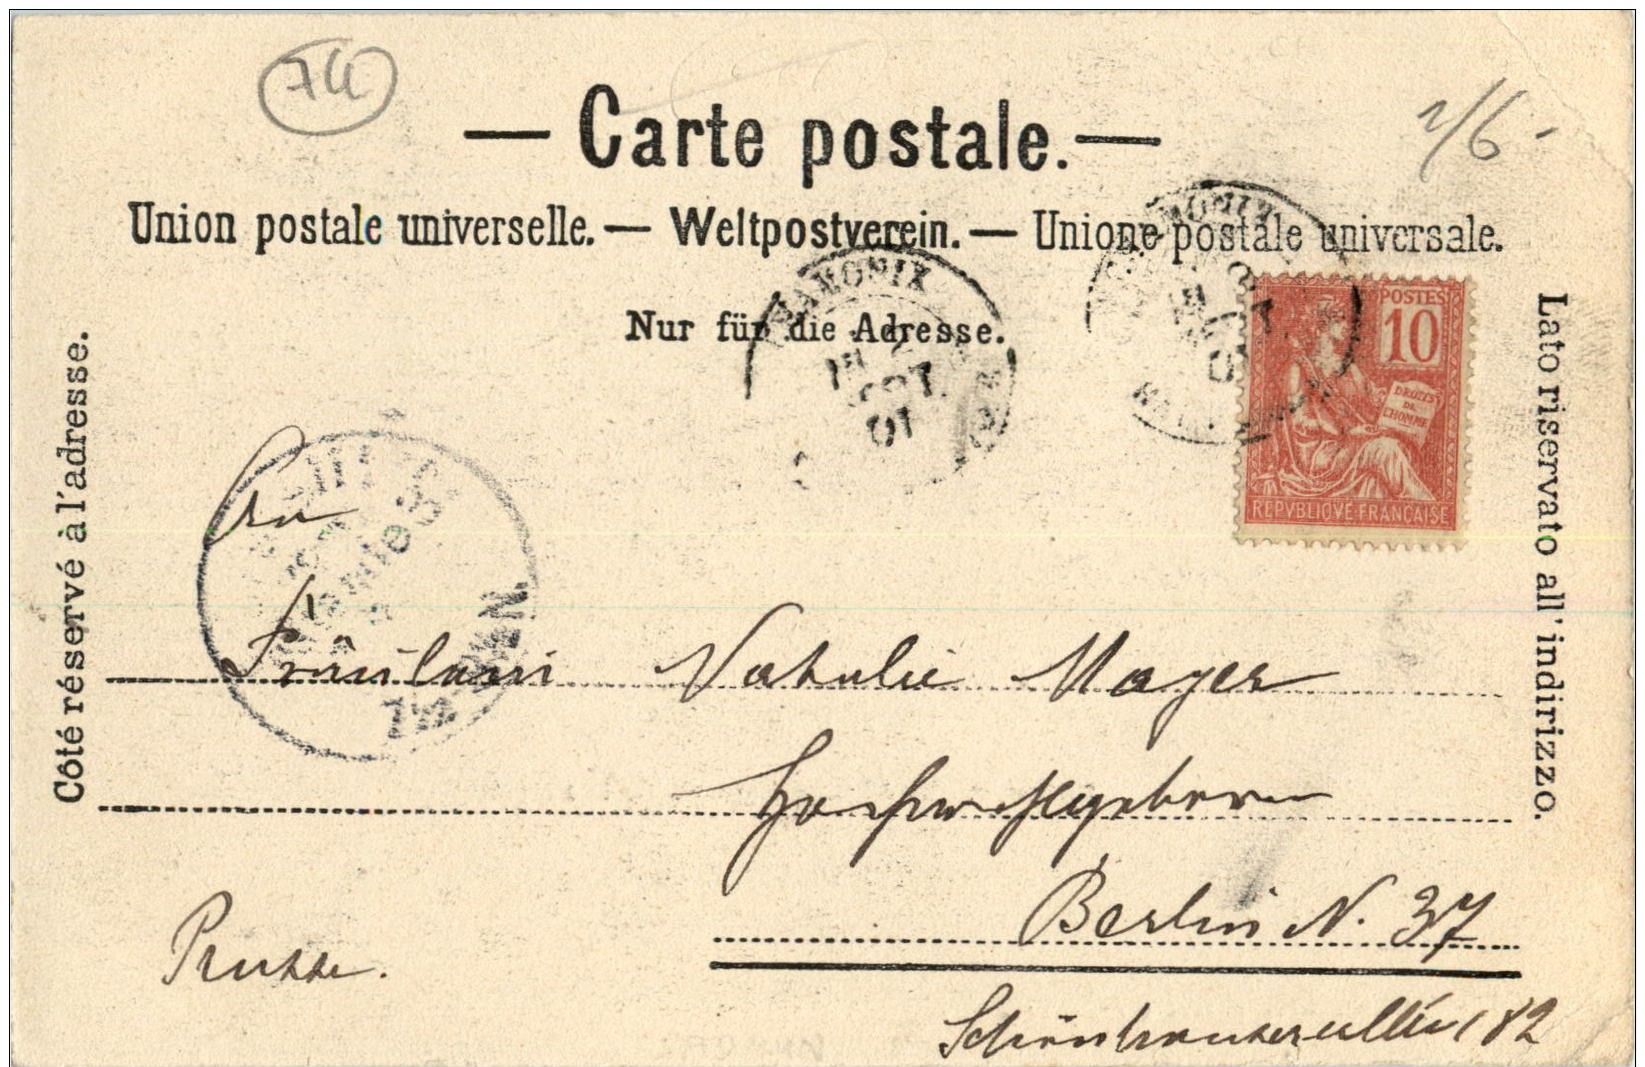 74
2/6 -
— Carte postale. —
Union postale universelle. — Weltpostverein. — Unione postale universale.
Nur für die Adresse.
Côté réservé à l'adresse.
Lato riservato all'indirizzo.
CHAMONIX
OCT
01
CHAMONIX
01
POSTES
10
DROITS
DE
L'HOMME
REPVBLIQVE FRANÇAISE
An
Fräulein Natalie Mayer
Berlin N. 37
Prusse.
Schönhauserallée 182